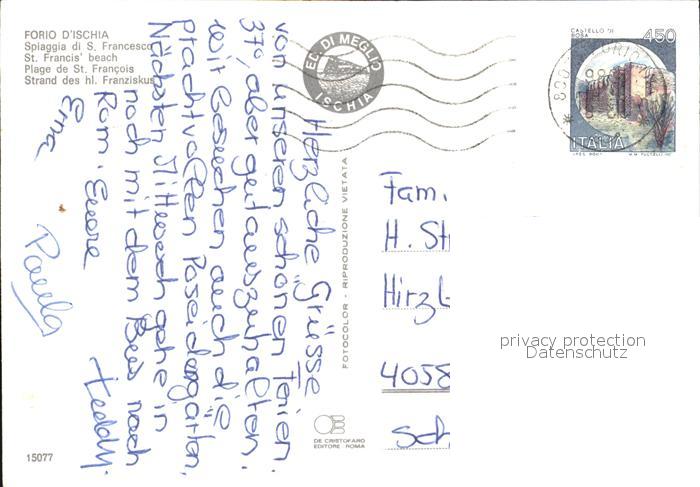 FORIO D'ISCHIA
Spiaggia di S. Francesco
St. Francis' beach
Plage de St. François
Strand des hl. Franziskus
EL DI MEGLIO
ISCHIA
CASTELLO DI
ROSA
450
ITALIA
Herzliche Grüsse
von unseren schönen Ferien.
37°, aber gut auszuhalten.
Wir besuchen auch die
prachtvollen Poseidongärten,
Nächsten Mittwoch gehe in
noch mit dem Bus nach
Rom. Euere
Erna
Paula
Teddy.
FOTOCOLOR - RIPRODUZIONE VIETATA
Fam.
H. St
Hirzb
4058
Sch
privacy protection
Datenschutz
DE CRISTOFARO
EDITORE ROMA
15077